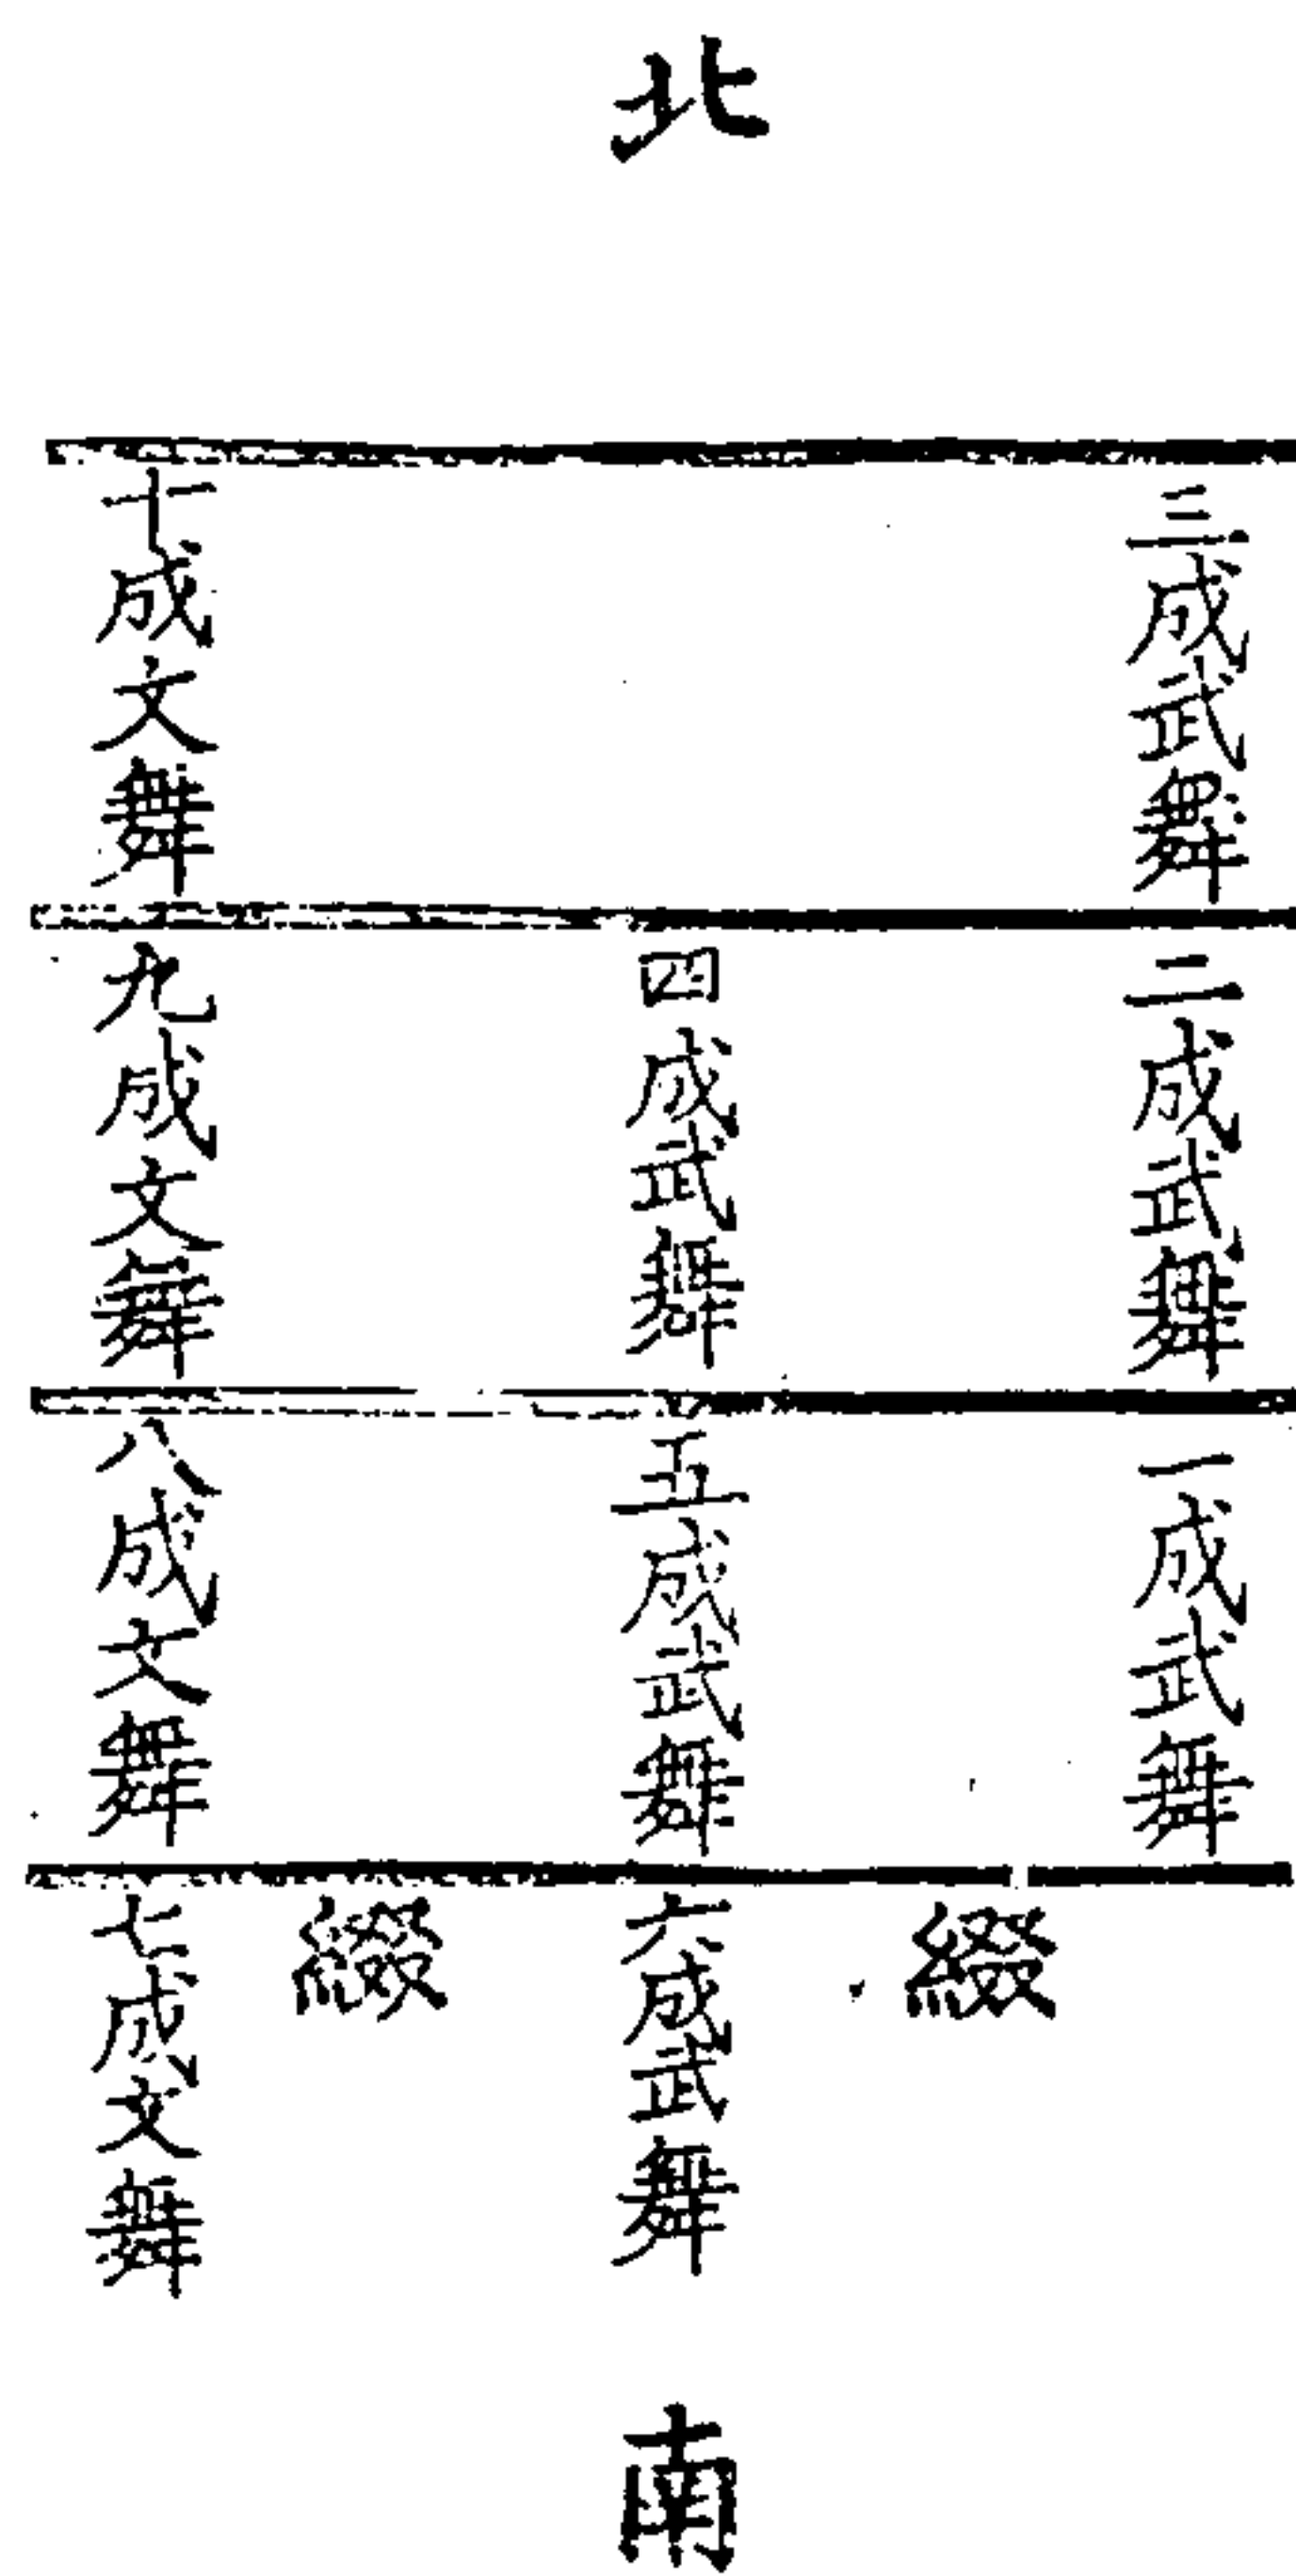 北
三成武舞
二成武舞
一成武舞
綴
四成武舞
五成武舞
六成武舞
綴
十成文舞
九成文舞
八成文舞
七成文舞
南